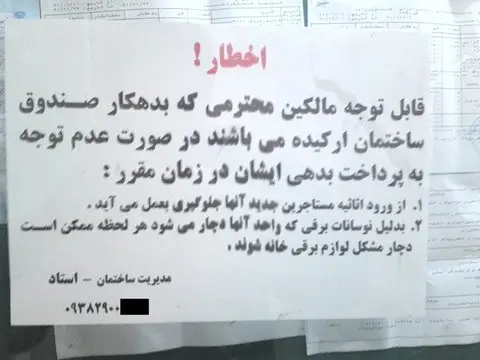 اخطار !
قابل توجه مالکین محترمی که بدهکار صندوق
ساختمان ارکیده می باشند در صورت عدم توجه
به پرداخت بدهی ایشان در زمان مقرر :
۱. از ورود اثاثیه مستاجرین جدید آنها جلوگیری بعمل می آید .
۲. بدلیل نوسانات برقی که واحد آنها دچار می شود هر لحظه ممکن است
دچار مشکل لوازم برقی خانه شوند .
مدیریت ساختمان – استاد
۰۹۳۸۲۹۰۰